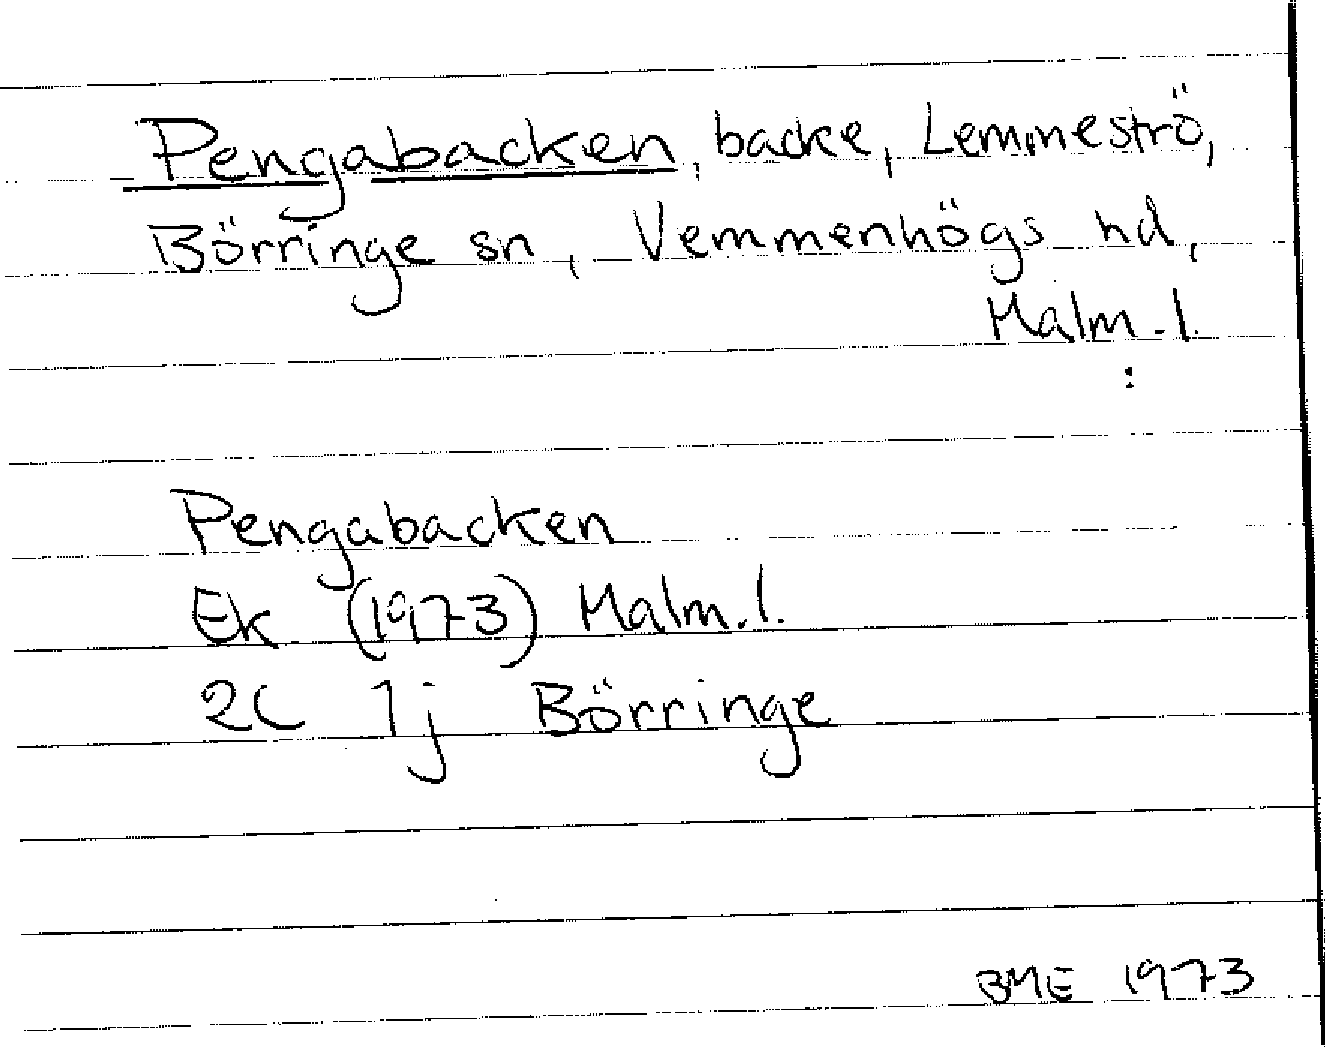 Pengabacken, backe, Lemmeströ,
Börringe sn, Vemmenhögs hd,
Malm.l.
:
Pengabacken
Ek (1973) Malm.l.
2C 1j Börringe
BME 1973